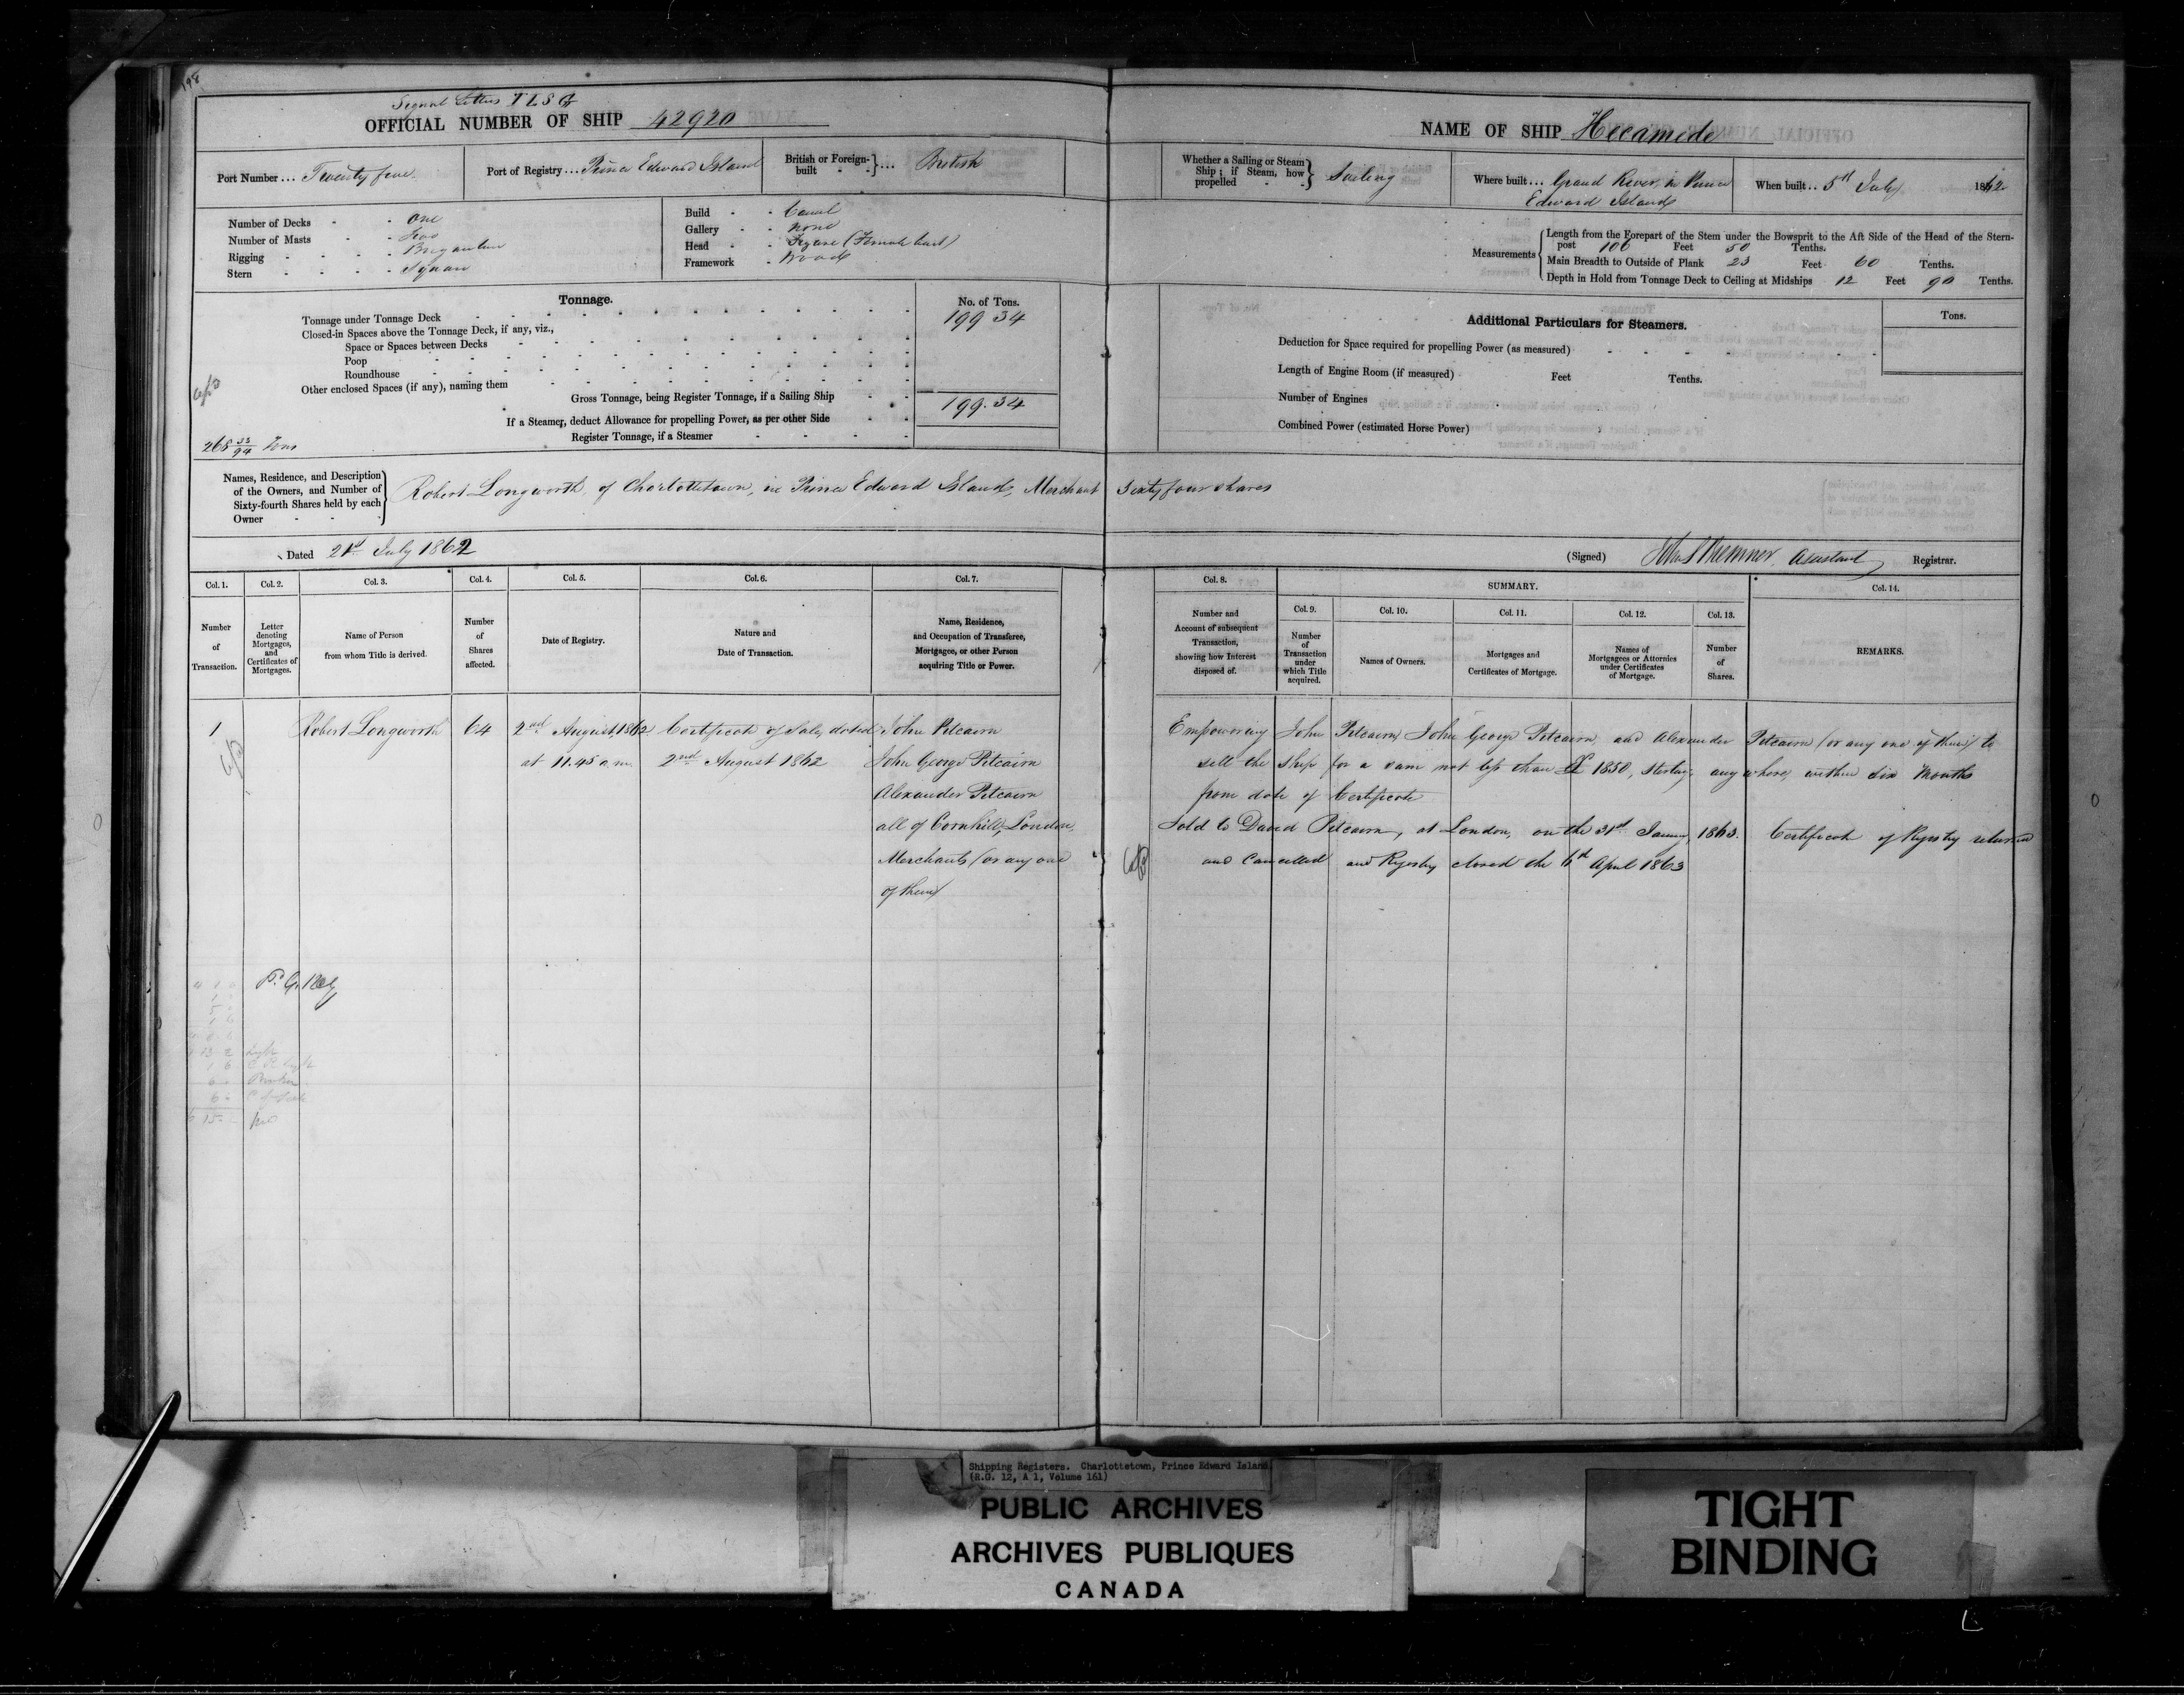 198
Signal Letters T L S G
OFFICIAL NUMBER OF SHIP 42920
NAME OF SHIP Hecamede
Port Number ... Twenty five
Port of Registry ... Prince Edward Island
British or Foreign-built } ... British
Whether a Sailing or Steam Ship; if Steam, how propelled } Sailing
Where built ... Grand River, in Prince Edward Island
When built .. 5th July 1862
Number of Decks - - One
Number of Masts - - Two
Rigging - - - - Brigantine
Stern - - - - Square
Build - - Carvel
Gallery - - None
Head - - Figure (Female bust)
Framework - Wood
Measurements
Length from the Forepart of the Stem under the Bowsprit to the Aft Side of the Head of the Stern-
post 106 Feet 50 Tenths.
Main Breadth to Outside of Plank 23 Feet 60 Tenths.
Depth in Hold from Tonnage Deck to Ceiling at Midships 12 Feet 90 Tenths.
Tonnage.
No. of Tons.
Tonnage under Tonnage Deck 199 34
Closed-in Spaces above the Tonnage Deck, if any, viz.,
Space or Spaces between Decks
Poop
Roundhouse
Other enclosed Spaces (if any), naming them
Gross Tonnage, being Register Tonnage, if a Sailing Ship 199.34
If a Steamer, deduct Allowance for propelling Power, as per other Side
Register Tonnage, if a Steamer
268 33/94 Tons
Additional Particulars for Steamers.
Tons.
Deduction for Space required for propelling Power (as measured)
Length of Engine Room (if measured) Feet Tenths.
Number of Engines
Combined Power (estimated Horse Power)
Names, Residence, and Description
of the Owners, and Number of
Sixty-fourth Shares held by each
Owner
Robert Longworth, of Charlottetown, in Prince Edward Island, Merchant Sixty four shares
Dated 21st July 1862
(Signed) Assistant Registrar.
Col. 1. Col. 2. Col. 3. Col. 4. Col. 5. Col. 6. Col. 7.
Number of Transaction.
Letter denoting Mortgages, and Certificates of Mortgages.
Name of Person from whom Title is derived.
Number of Shares affected.
Date of Registry.
Nature and Date of Transaction.
Name, Residence, and Occupation of Transferee, Mortgagee, or other Person acquiring Title or Power.
Col. 8. SUMMARY. Col. 14.
Col. 9. Col. 10. Col. 11. Col. 12. Col. 13.
Number and Account of subsequent Transaction, showing how Interest disposed of.
Number of Transaction under which Title acquired.
Names of Owners.
Mortgages and Certificates of Mortgage.
Names of Mortgagees or Attornies under Certificates of Mortgage.
Number of Shares.
REMARKS.
1 Robert Longworth 64 2nd August, 1862 Certificate of Sale, dated John Pitcairn
at 11.45 a.m. 2nd August 1862 John George Pitcairn
Alexander Pitcairn
all of Cornhill, London,
Merchants (or any one
of them)
Empowering John Pitcairn, John George Pitcairn, and Alexander Pitcairn (or any one of them) to
sell the ship for a sum not less than £ 1850, Sterling, any where, within six Months
from date of Certificate
Sold to David Pitcairn, at London, on the 31st January, 1863. Certificate of Registry returned
and Cancelled and Registry closed the 6th April 1863
Shipping Registers. Charlottetown, Prince Edward Island
(R.G. 12, A 1, Volume 161)
PUBLIC ARCHIVES
ARCHIVES PUBLIQUES
CANADA
TIGHT
BINDING